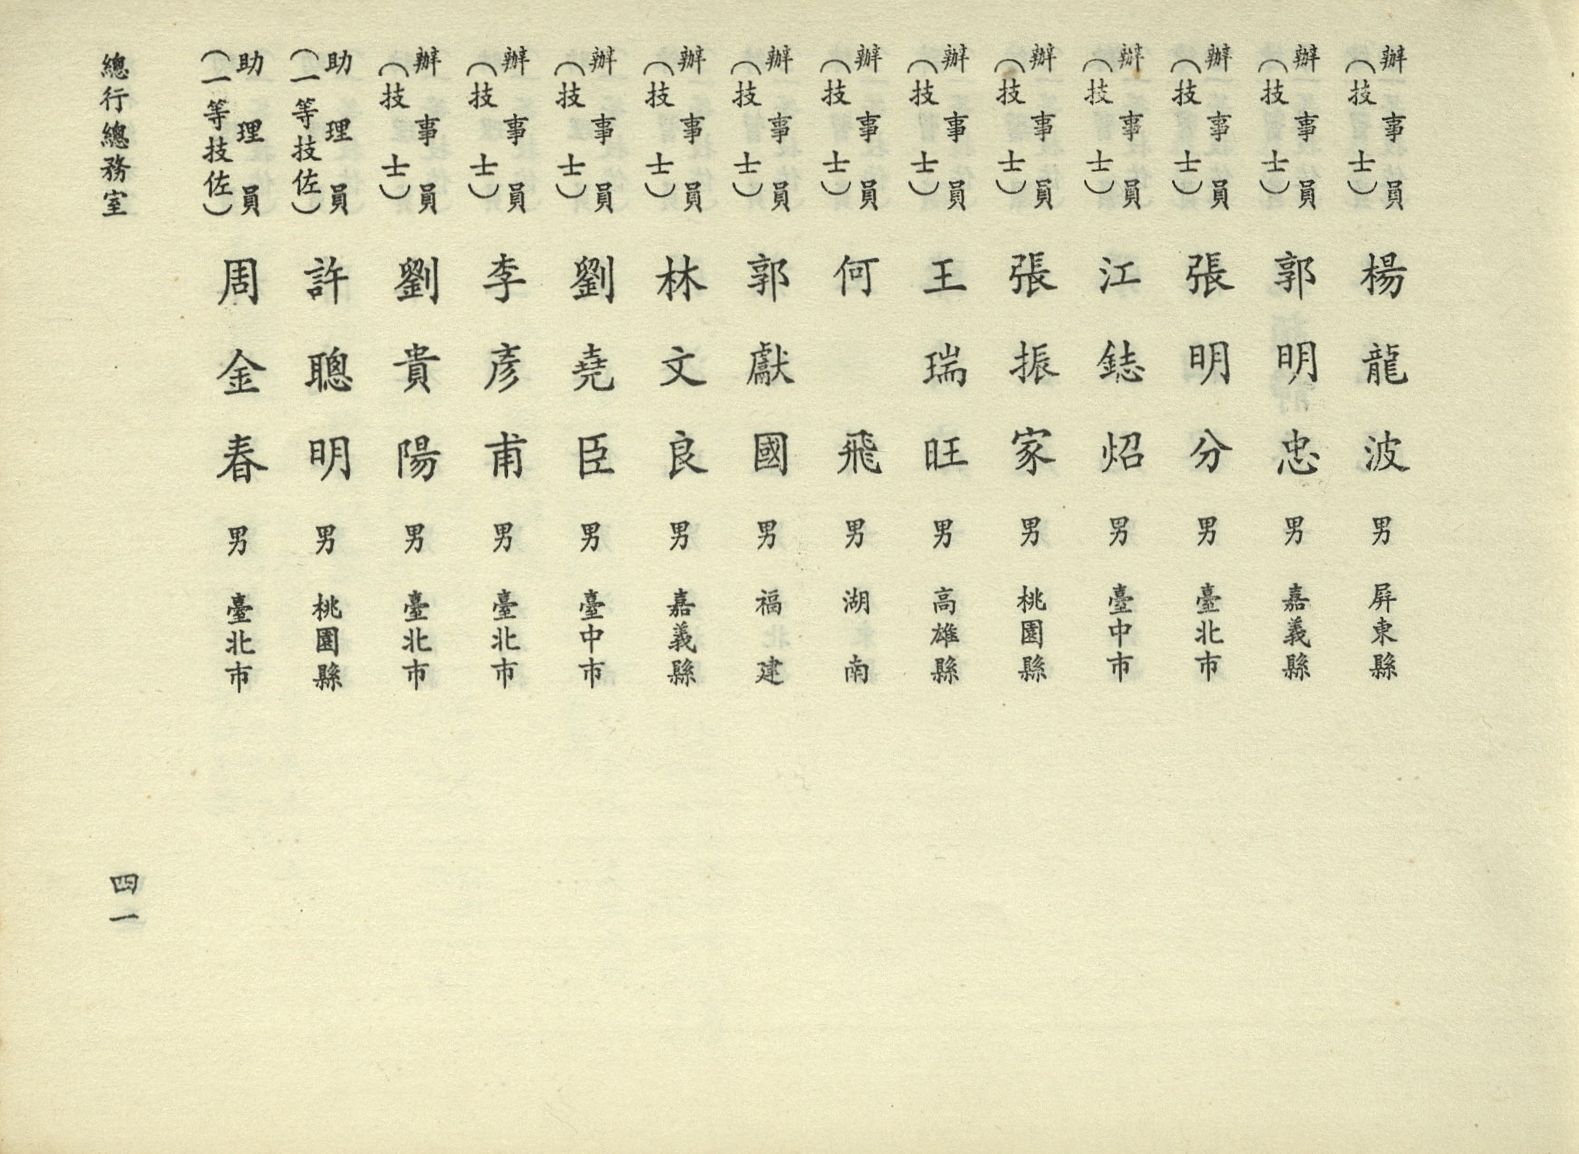 辦事員（技士）楊龍波 男 屏東縣
辦事員（技士）郭明忠 男 嘉義縣
辦事員（技士）張明分 男 臺北市
辦事員（技士）江鋕炤 男 臺中市
辦事員（技士）張振家 男 桃園縣
辦事員（技士）王瑞旺 男 高雄縣
辦事員（技士）何飛 男 湖南
辦事員（技士）郭獻國 男 福建
辦事員（技士）林文良 男 嘉義縣
辦事員（技士）劉堯臣 男 臺中市
辦事員（技士）李彥甫 男 臺北市
辦事員（技士）劉貴陽 男 臺北市
助理員（一等技佐）許聰明 男 桃園縣
助理員（一等技佐）周金春 男 臺北市
總行總務室
四一